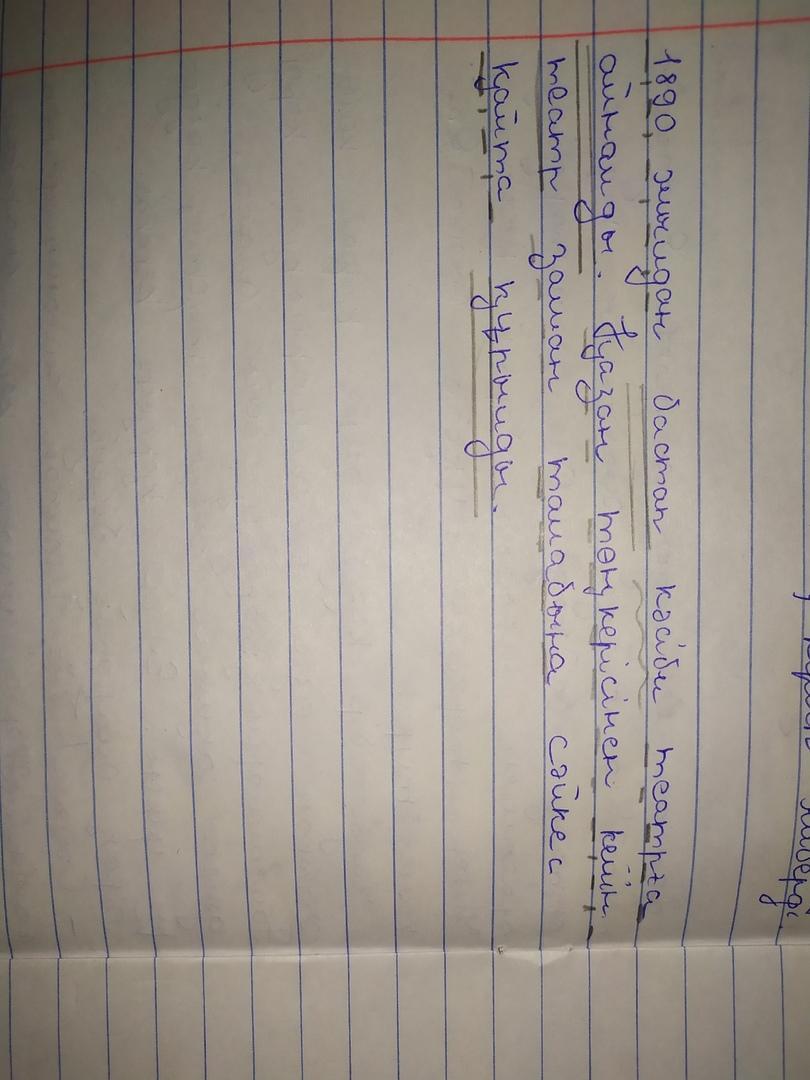 1890 жылдан бастап кәсіби театрға
айналды. Қазан төңкерісінен кейін
театр заман талабына сәйкес
қайта құрылды.